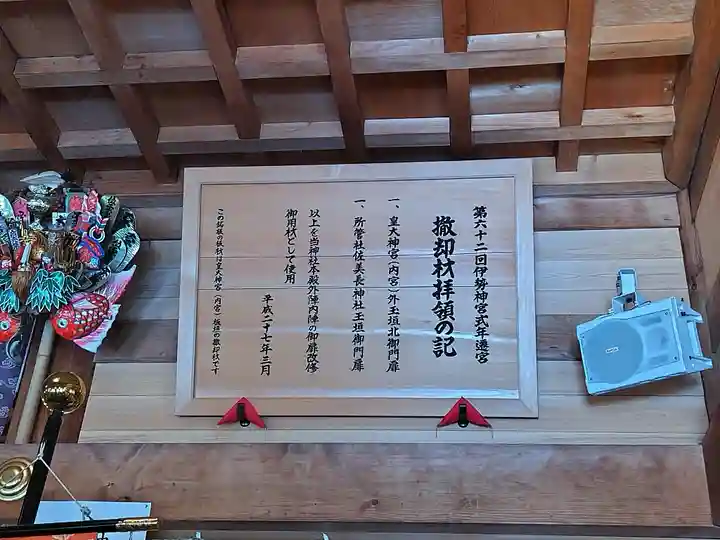 第六十二回伊勢神宮式年遷宮
撤却材拝領の記
一、皇大神宮（内宮）外玉垣北御門扉
一、所管社佐美長神社玉垣御門扉
以上を当神社本殿外陣内陣の御扉改修
御用材として使用
平成二十七年三月
この銘板の板材は皇大神宮（内宮）板垣の撤却材です